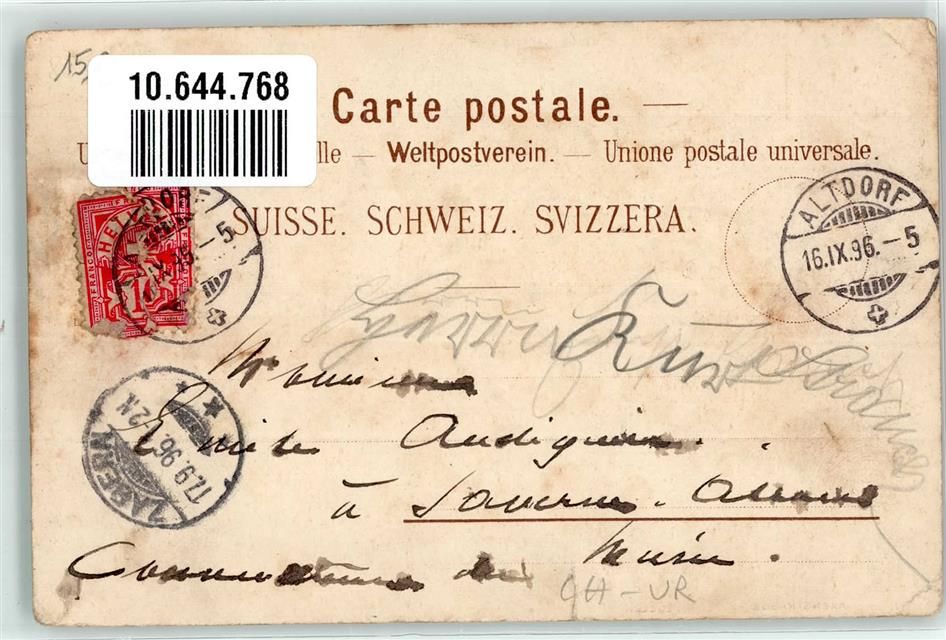 15
10.644.768
Carte postale.
U lle — Weltpostverein. — Unione postale universale.
SUISSE. SCHWEIZ. SVIZZERA.
FRANCO HEL
10
IX.96.–5
ALTDORF
16.IX.96.–5
Herrn Kurt
Monsieur
Emile Audiguier.
ZABERN
17.9.96. 12N
à Saverne. Alsace
Conservateur du Musée.
CH-UR